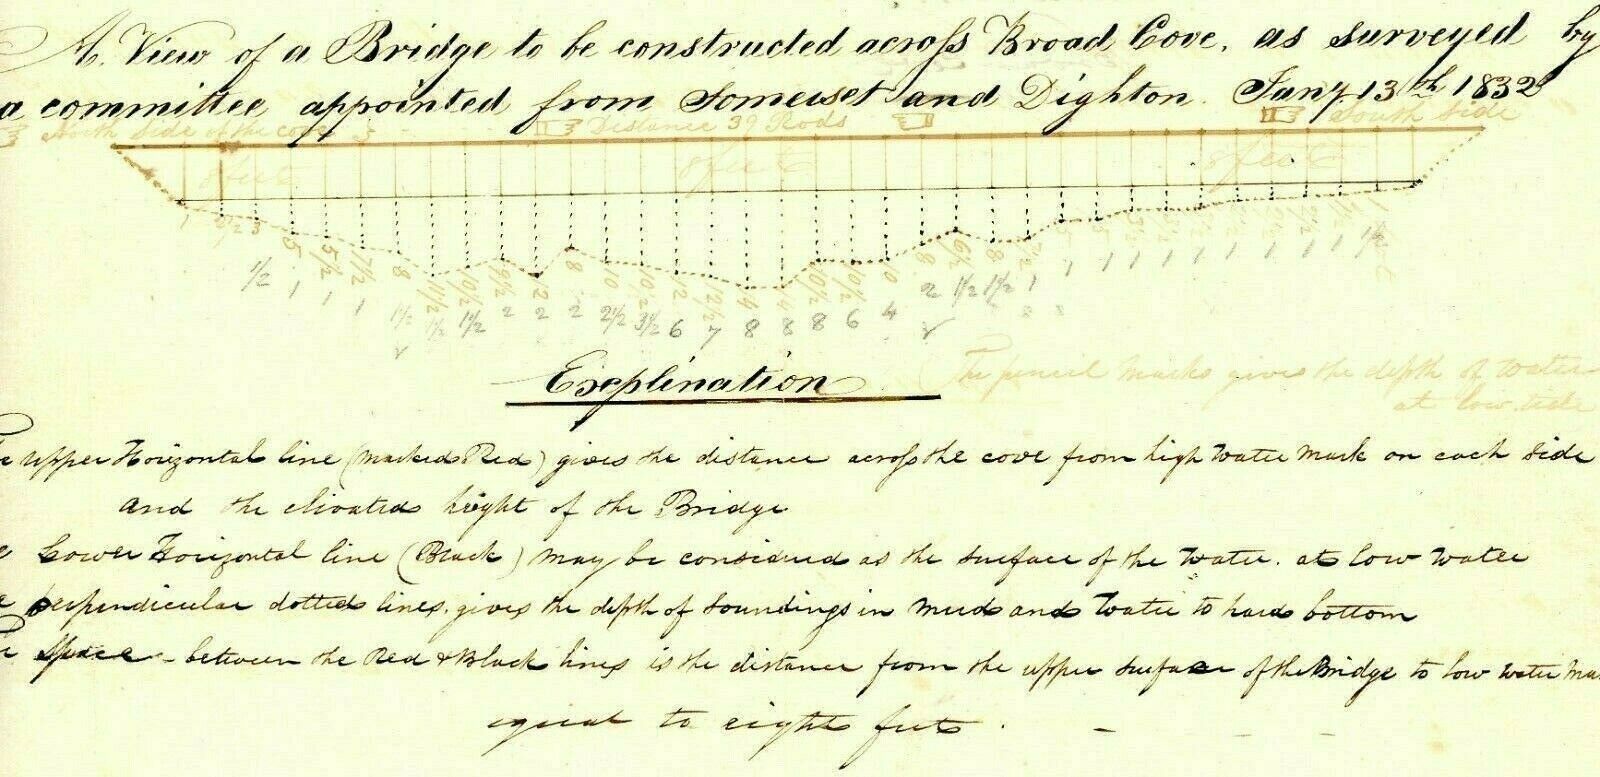 A View of a Bridge to be constructed across Broad Cove, as surveyed by
a committee appointed from Somerset and Dighton. Jany. 13th 1832
North Side of the cove Distance 39 Rods South Side
8 feet 8 feet 8 feet
1 2 1/2 3 5 5 1/2 7 1/2 8 11 1/2 10 1/2 9 1/2 12 8 10 10 1/2 12 12 1/2 14 14 10 1/2 10 1/2 10 8 6 1/2 8 7 1/2
1/2 1 1 1 1 1/2 1 1/2 1 1/2 2 2 2 2 1/2 3 1/2 6 7 8 8 8 6 4 2 1 1/2 1 1/2 1 1 1 1 1 1 1 1 1 1
Explination
The pencil marks gives the depth of water
at low tide
upper Horizontal line (marked Red) gives the distance across the cove from high water mark on each side
and the elivated hight of the Bridge
Lower Horizontal line (Black) may be considered as the surface of the water. at low water
perpendicular dotted lines. gives the depth of soundings in mud and water to hard bottom
space - between the Red & Black lines is the distance from the upper surface of the Bridge to low water
equal to eight feet.